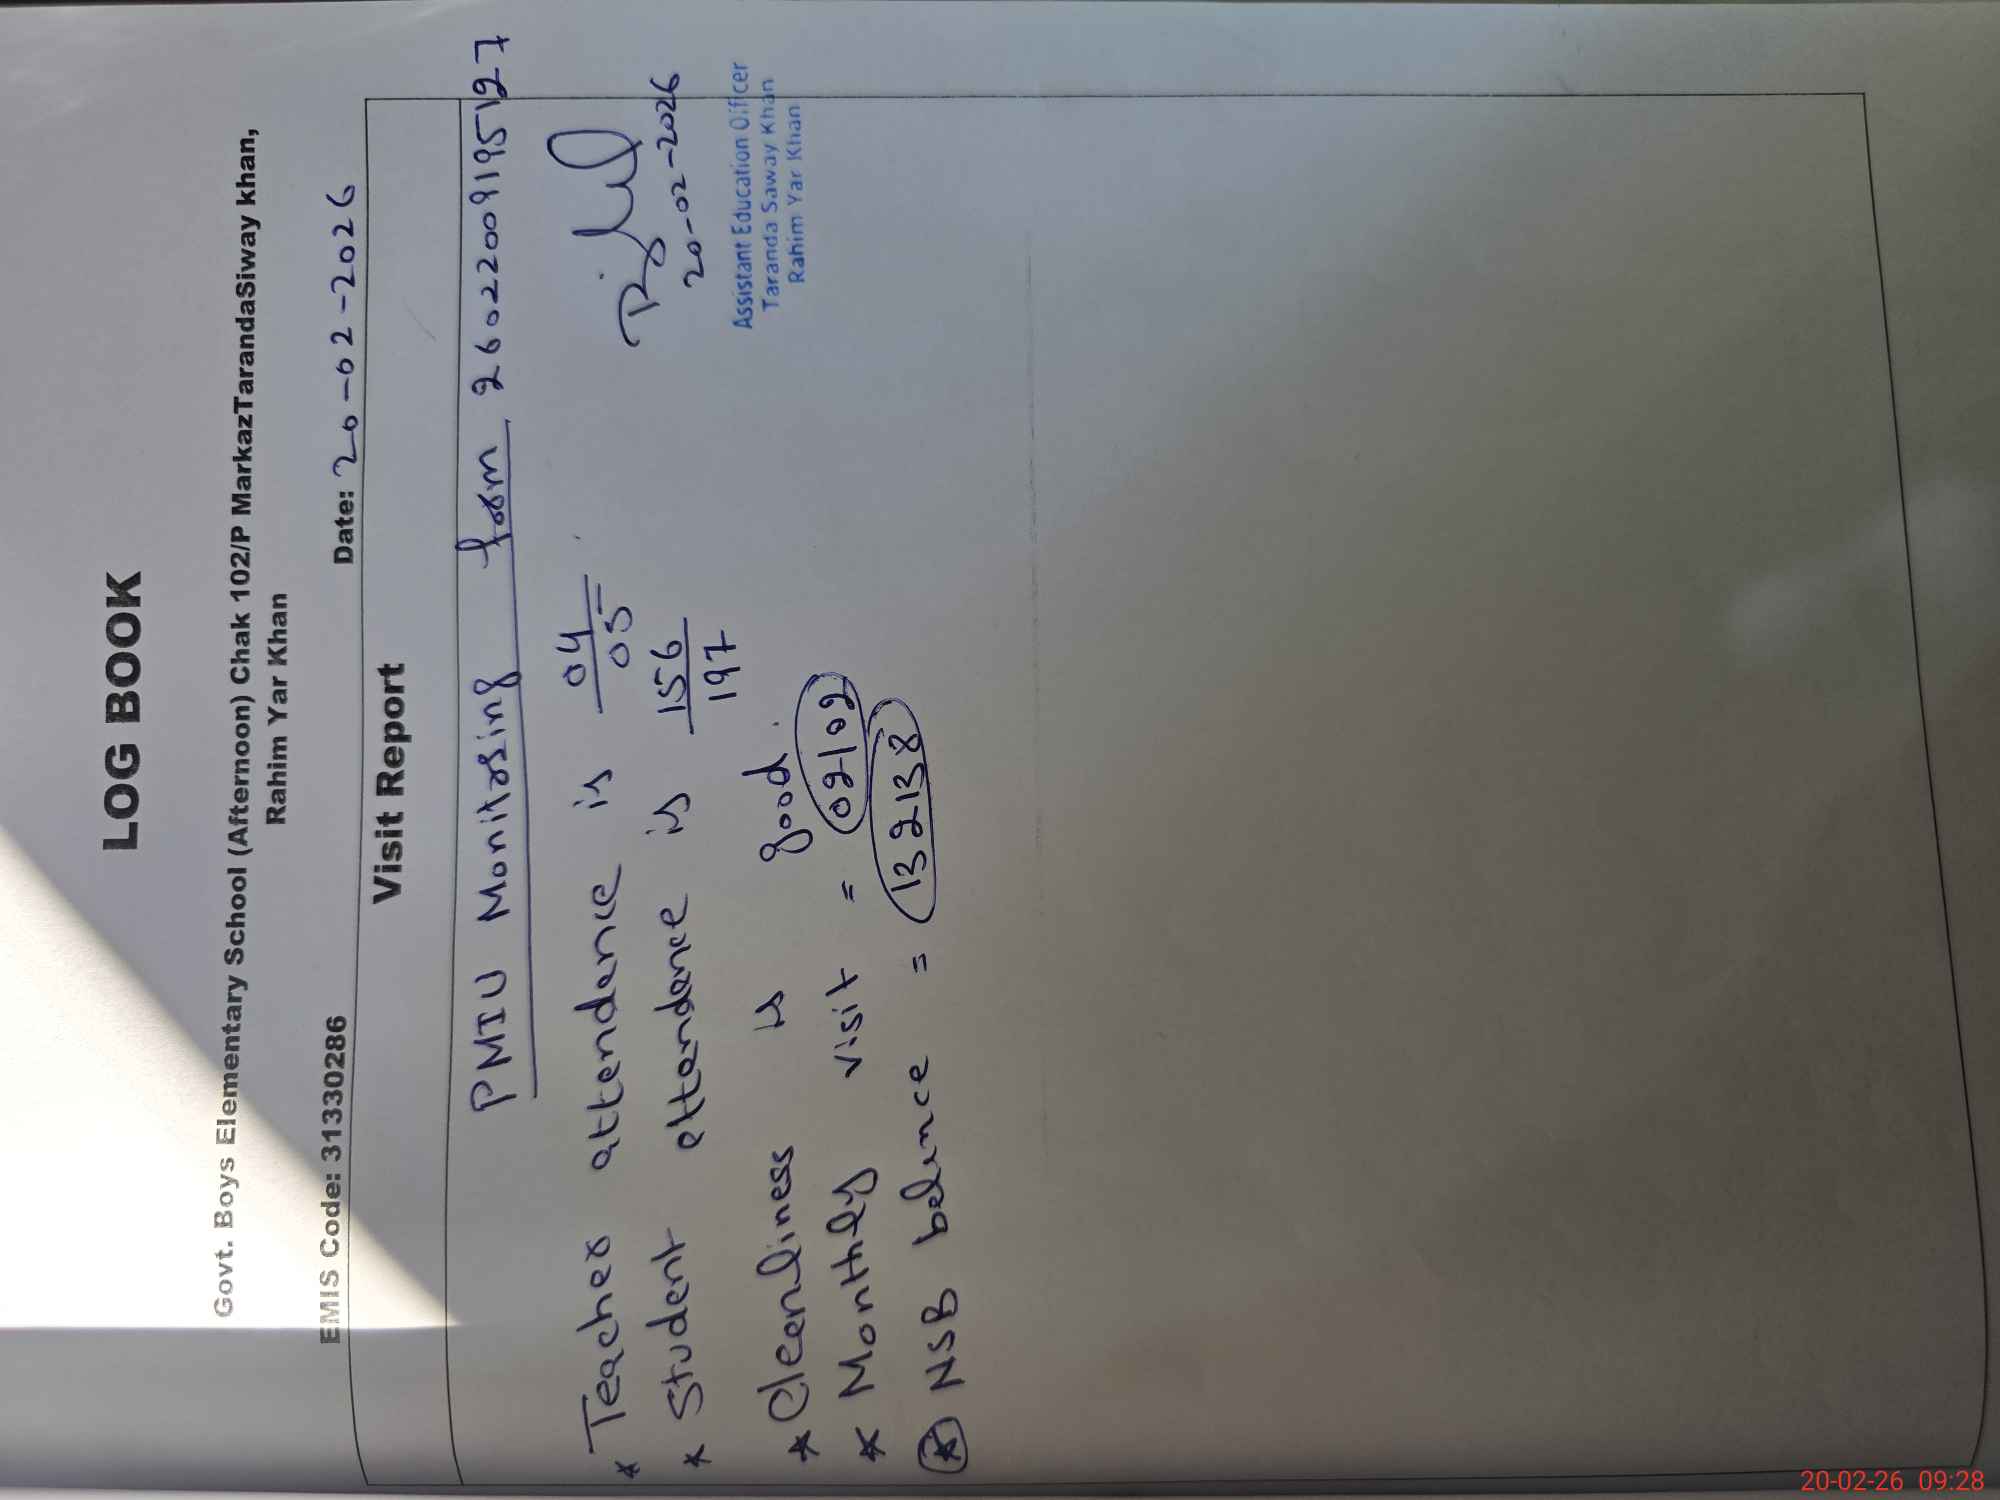 LOG BOOK
Govt. Boys Elementary School (Afternoon) Chak 102/P MarkazTarandaSiway khan,
Rahim Yar Khan
EMIS Code: 31330286 Date: 20-02-2026
Visit Report
PMIU Monitoring form 26022009195127
* Teacher attendence is 04/05
* Student attendance is 156/197
* Cleenliness is good.
* Monthly visit = 02/02
* NSB balance = 132138
20-02-2026
Assistant Education Officer
Taranda Saway Khan
Rahim Yar Khan
20-02-26 09:28